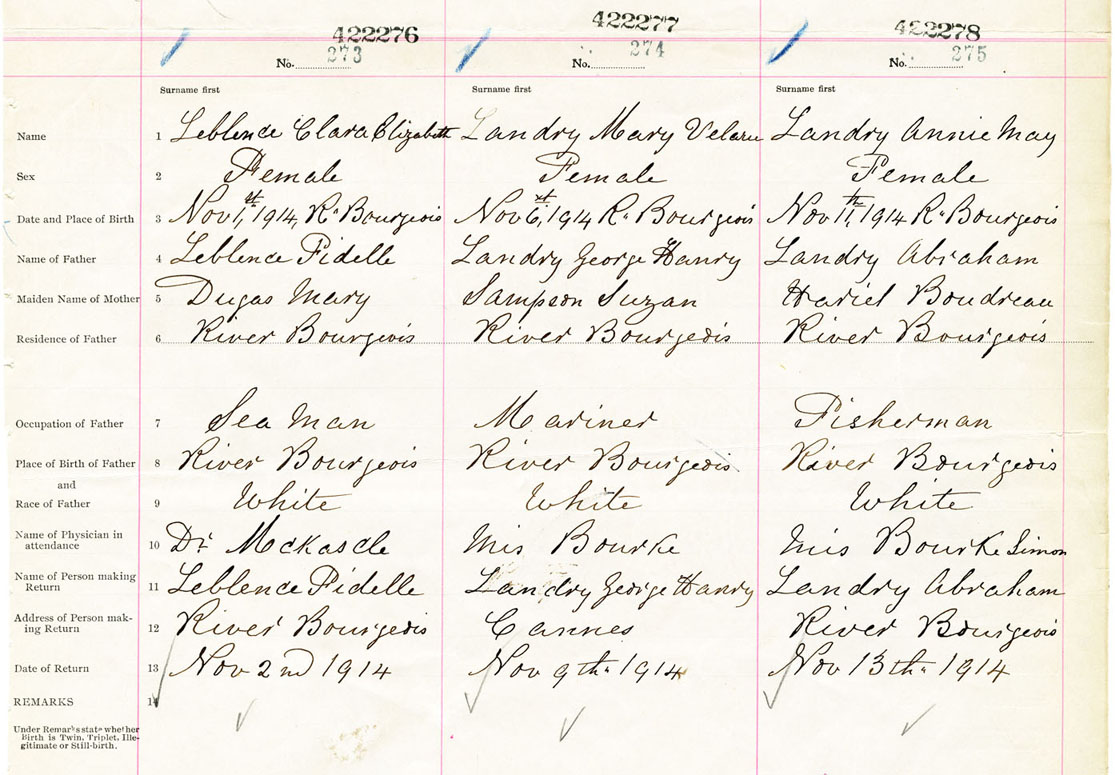 422276 422277 422278
No. 273 No. 274 No. 275
Surname first Surname first Surname first
Name 1 Leblence Clara Elizabeth Landry Mary Velarie Landry Annie May
Sex 2 Female Female Female
Date and Place of Birth 3 Nov 1st, 1914, R. Bourgeois Nov 6th, 1914 R. Bourgeois Nov 11th, 1914 R. Bourgeois
Name of Father 4 Leblence Fidelle Landry George Hanry Landry Abraham
Maiden Name of Mother 5 Dugas Mary Sampson Suzan Hariet Boudreau
Residence of Father 6 River Bourgeois River Bourgeois River Bourgeois
Occupation of Father 7 Sea Man Mariner Fisherman
Place of Birth of Father 8 River Bourgeois River Bourgeois River Bourgeois
and
Race of Father 9 White White White
Name of Physician in
attendance 10 Dr. Mis Bourke Mis Bourke Simon
Name of Person making
Return 11 Leblence Fidelle Landry George Hanry Landry Abraham
Address of Person mak-
ing Return 12 River Bourgeois Cannes River Bourgeois
Date of Return 13 Nov 2nd 1914 Nov 9th 1914 Nov 13th 1914
REMARKS 14
Under Remarks state whether
Birth is Twin, Triplet, Ille-
gitimate or Still-birth.